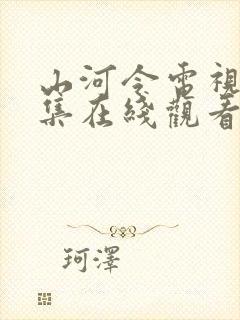 山河令電視
集在綫觀看
珂澤